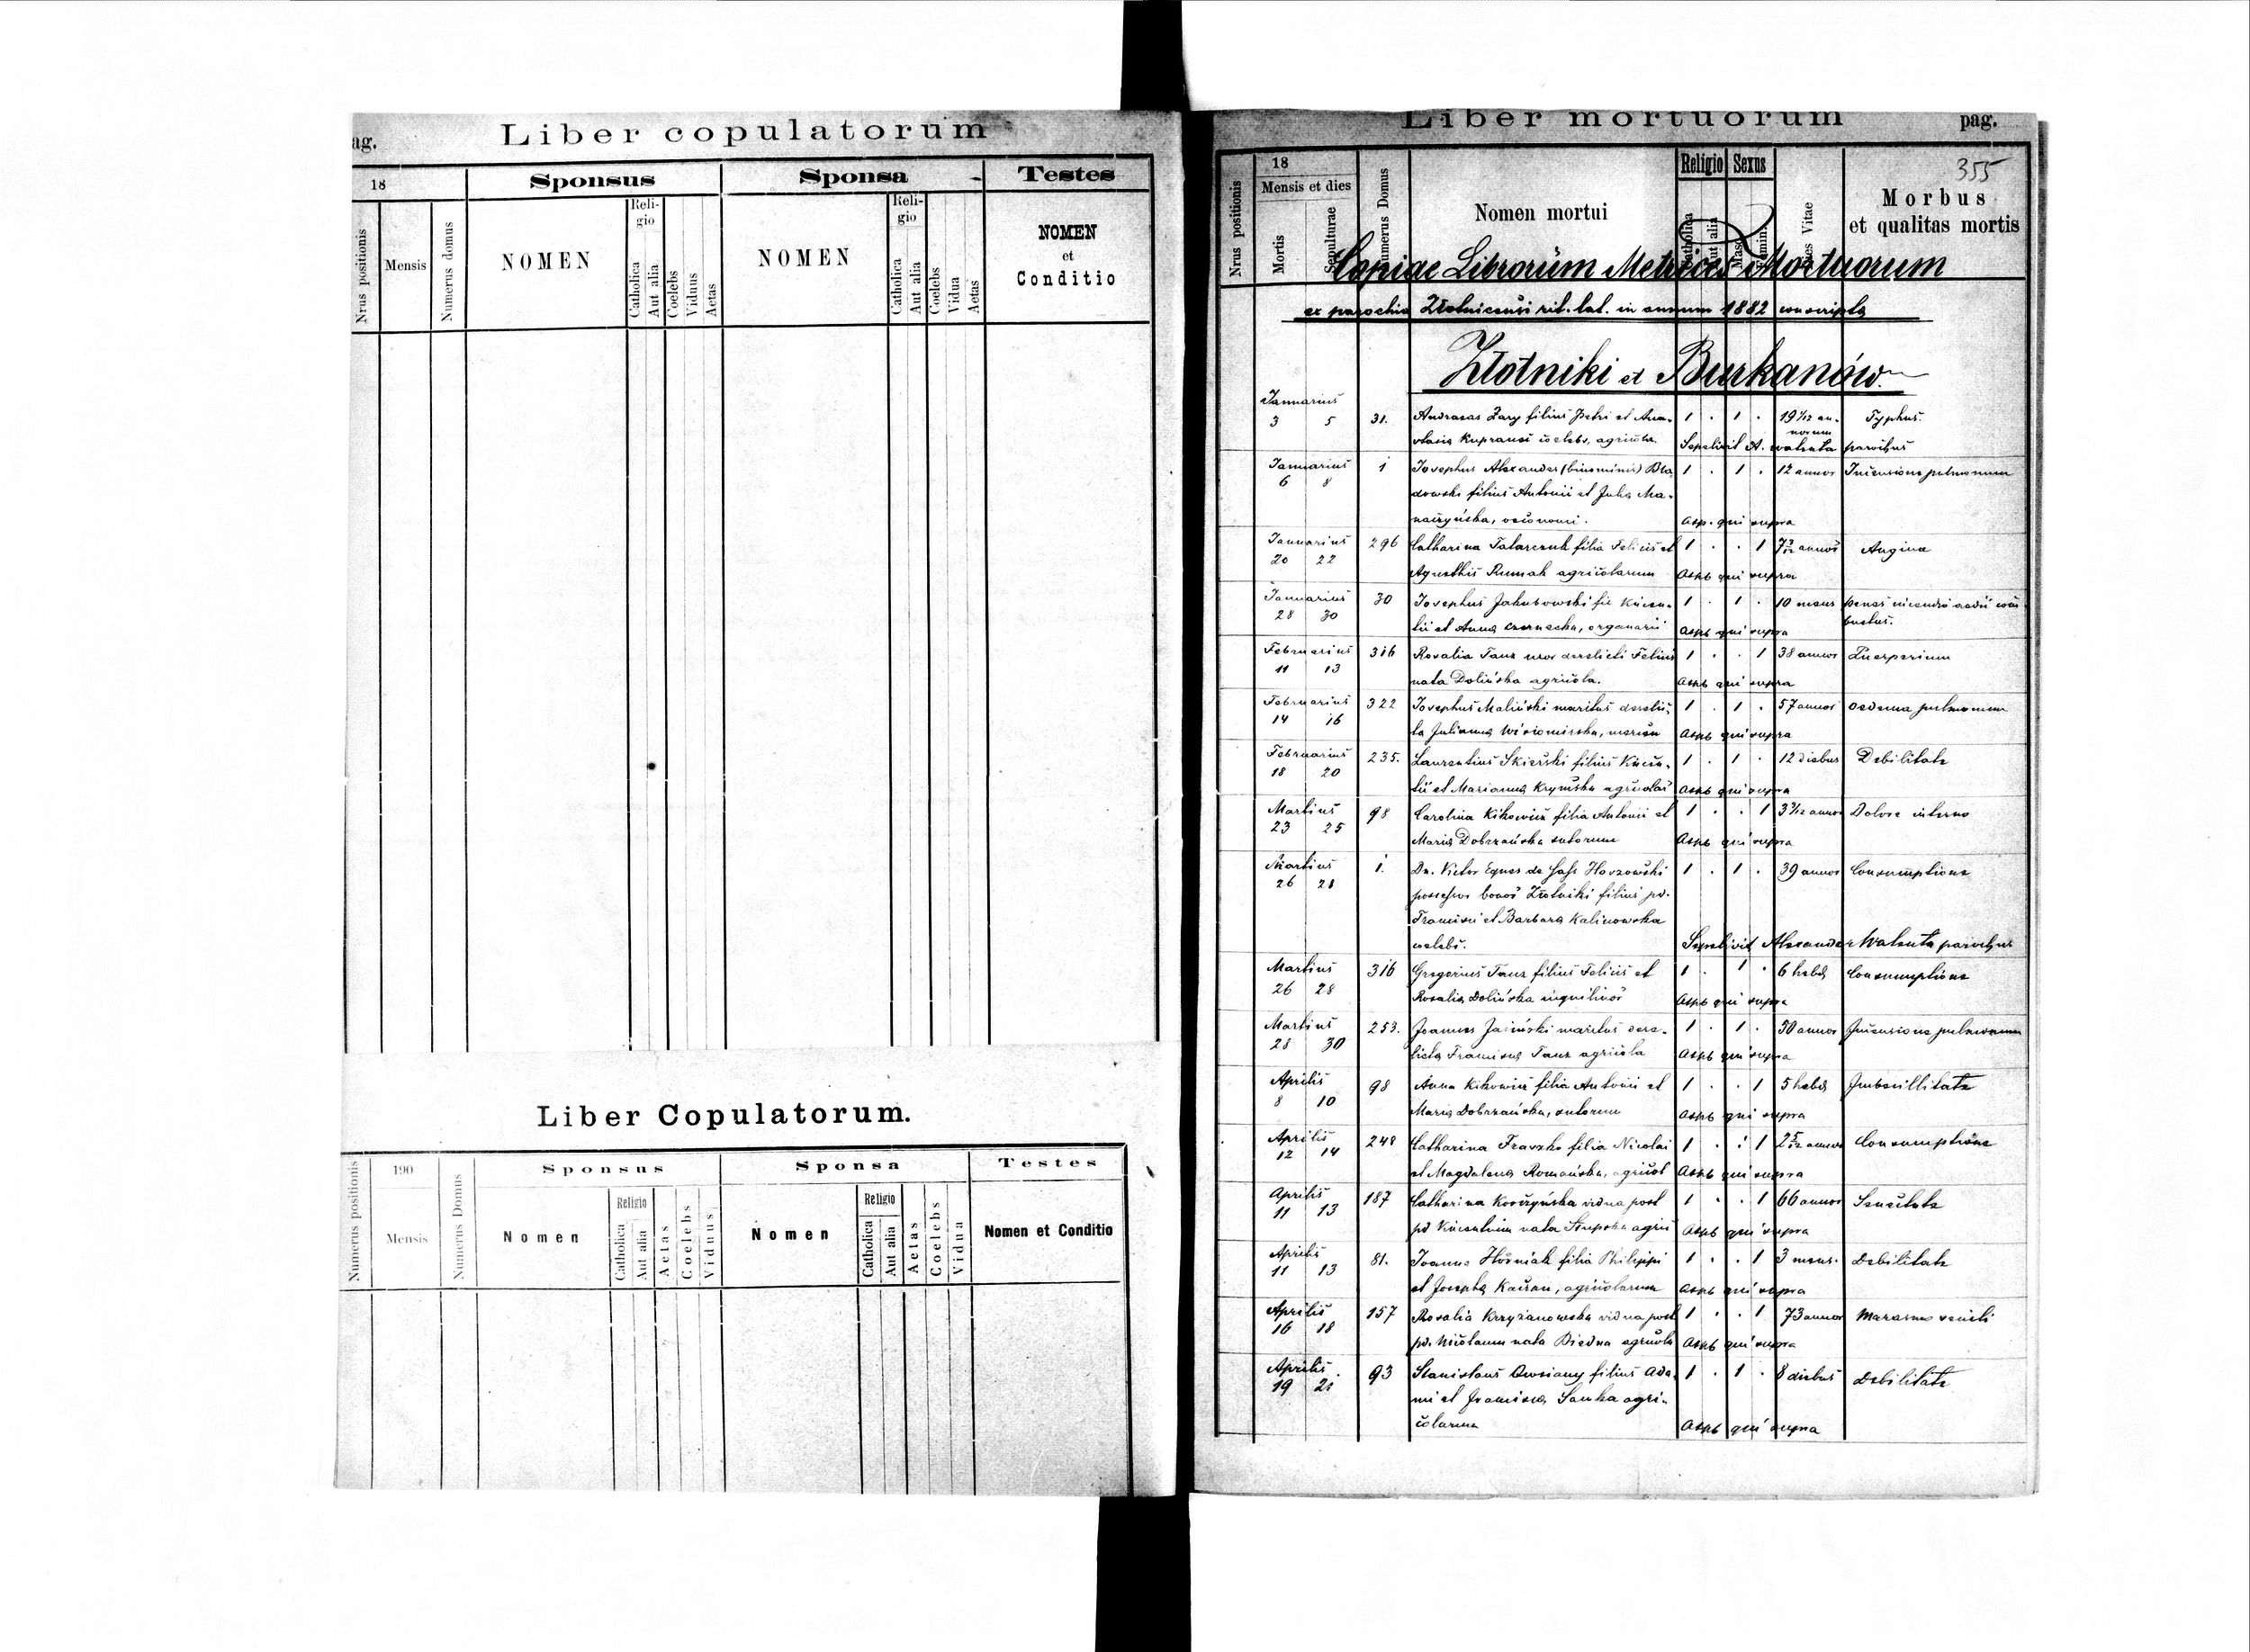 ag.
Liber copulatorum
18
Sponsus
Sponsa
Testes
Nrus positionis
Mensis
Numerus domus
NOMEN
Reli-
gio
Catholica
Aut alia
Coelebs
Viduus
Aetas
NOMEN
Reli-
gio
Catholica
Aut alia
Coelebs
Vidua
Aetas
NOMEN
et
Conditio
Liber Copulatorum.
Numerus positionis
190
Mensis
Numerus Domus
Sponsus
Nomen
Religio
Catholica
Aut alia
Aetas
Coelebs
Viduus
Sponsa
Nomen
Religio
Catholica
Aut alia
Aetas
Coelebs
Vidua
Testes
Nomen et Conditio
Liber mortuorum
pag.
355
Nrus positionis
18
Mensis et dies
Mortis
Sepulturae
Numerus Domus
Nomen mortui
Religio
Catholica
Aut alia
Sexus
Masc
Femin
Dies Vitae
Morbus
et qualitas mortis
Copiae Librorum Metrices Mortuorum
ex parochia Złotnicensi rit. lat. in annum 1882 conscripta
Złotniki et Burkanów
Januarius
3 5 31. Andreas Zary filius Petri et Ana- 1 . 1 . 19 1/12 an- Typhus.
stasia agricola norum
Sepelivit A. Walenta parochus
Januarius 1 Josephus Alexander (binominis) 1 . 1 . 12 annor pulmonum
6 8
dowski filius Antonii et Julia Ma-
Asp. qui supra
Januarius 296 Catharina Tatarczuk filia Felicis et 1 . . 1 annor Angina
20 22
agricolarum Aspb qui supra
Januarius 30 Josephus Jakubowski fil Vincen- 1 . 1 . 10 mens
28 30
tii et Anna Czernecka, organarii Aspb qui supra
Februarius 316 Rosalia Tanz uxor derelicti Felicis 1 . . 1 38 annor Puerperium
11 13
nata Dolińska agricola. Aspb qui supra
Februarius 322 Josephus Maliński maritus derelic- 1 . 1 . 57 annor oedema pulmonum
14 16
ta Julianna Aspb qui supra
Februarius 235. Laurentius Skierski filius Vincen- 1 . 1 . 12 diebus Debilitate
18 20
tii et Marianna Aspb qui supra
Martius 98 Carolina Kikowicz filia Antonii et 1 . . 1 annor Dolore interno
23 25
Maria Dobrzańska sutorum Aspb qui supra
Martius 1. Dn. Victor Eques de Hoszowski 1 . 1 . 39 annor Consumptione
26 28
possessor Złotniki filius pd.
Francisci et Barbara Kalinowska
caelebs. Sepelivit Alexander Walenta parochus
Martius 316 Gregorius Tanz filius Felicis et 1 . 1 . 6 hebd Consumptione
26 28
Rosalia Dolińska inquilinor Aspb qui supra
Martius 253. Joannes Jaiński maritus dere- 1 . 1 . 50 annor pulmonum
28 30
licta Francisca Tanz agricola Aspb qui supra
Aprilis 98 Anna Kikowicz filia Antonii et 1 . . 1 5 hebd Imbecillitate
8 10
Maria Dobrzańska, sutorum Aspb qui supra
Aprilis 248 Catharina Fraszko filia Nicolai 1 . . 1 2 5/12 annor Consumptione
12 14
et Magdalena Romańska, agricol Aspb qui supra
Aprilis 187 Catharina vidua post 1 . . 1 66 annor Senectute
11 13
pd Vincentium nata agric Aspb qui supra
Aprilis 81. Joanna Woźniak filia Philippi 1 . . 1 3 mens. Debilitate
11 13
et Josepha agricolarum Aspb qui supra
Aprilis 157 Rosalia Krzyżanowska vidua post 1 . . 1 73 annor Marasmo senili
16 18
pd. Nicolaum nata Biedna agricola Aspb qui supra
Aprilis 93 Stanislaus Owsiany filius Ada- 1 . 1 . 8 diebus Debilitate
19 21
mi et Francisca Sanka agri-
colarum Aspb qui supra